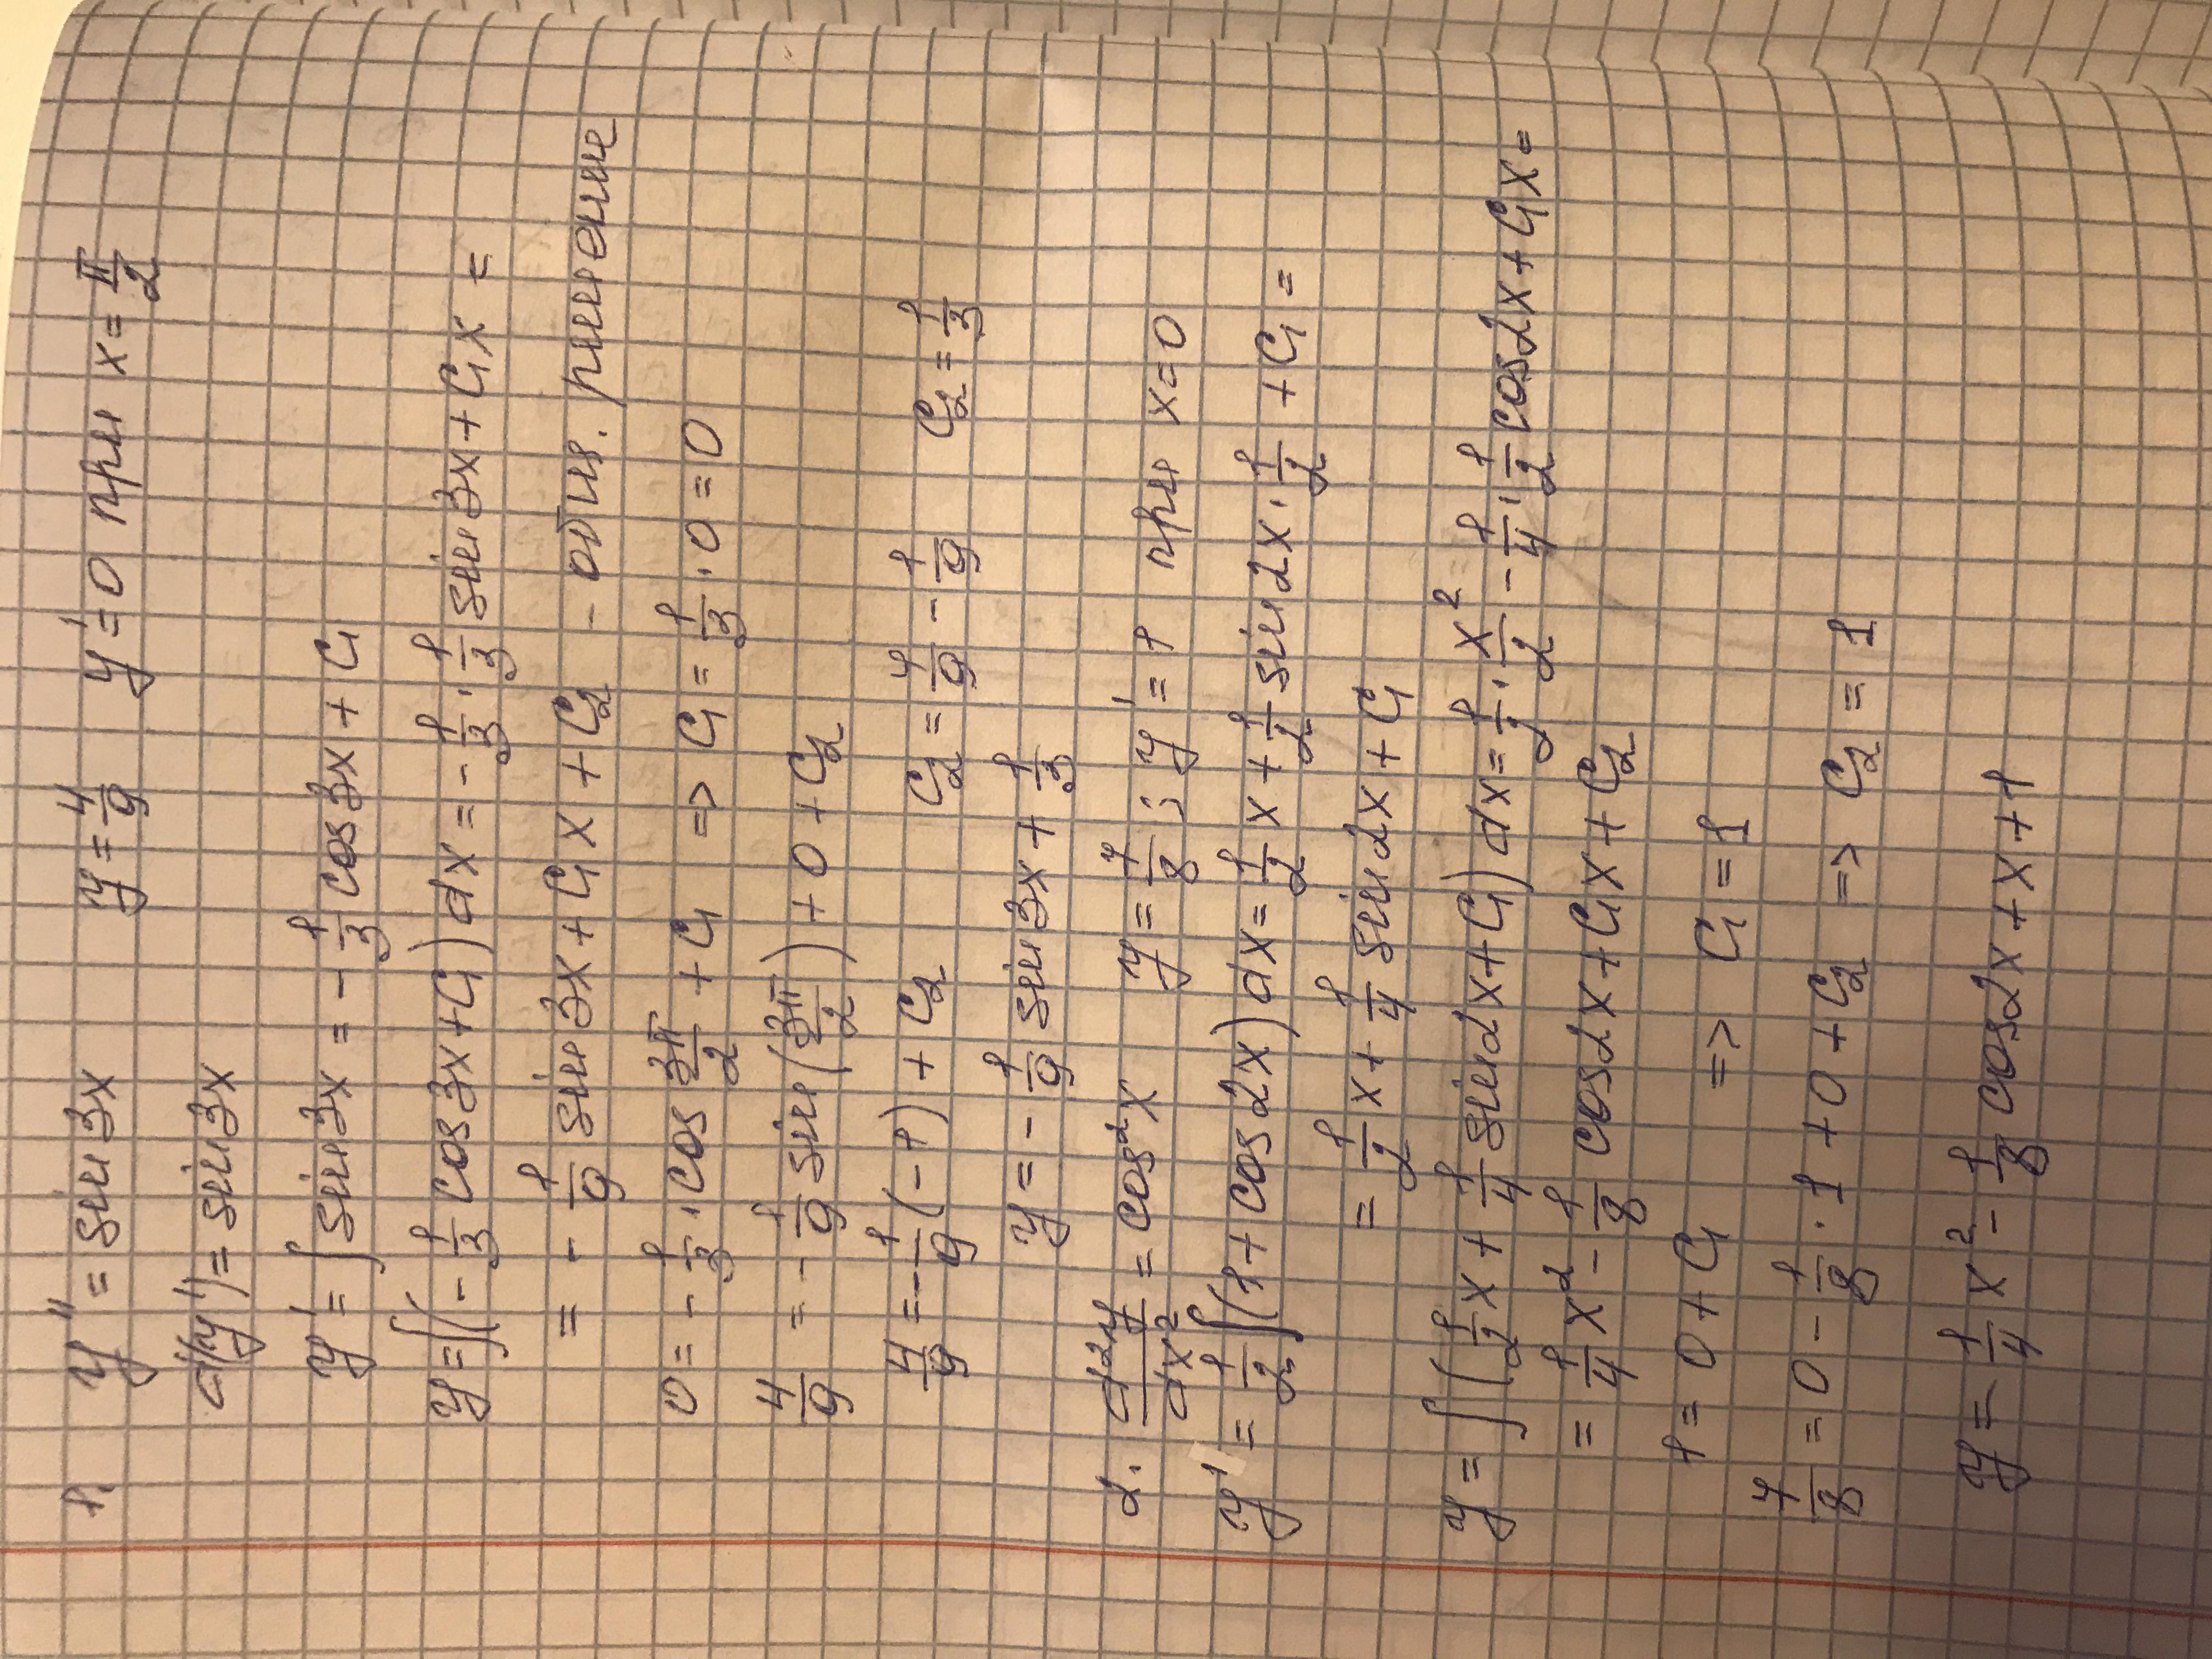 1. y'' = sin 3x y = 4/9 y' = 0 при x = π/2
d(y') = sin 3x
y' = ∫ sin 3x = - 1/3 cos 3x + C₁
y = ∫(- 1/3 cos 3x + C₁) dx = - 1/3 · 1/3 sin 3x + C₁x =
= - 1/9 sin 3x + C₁x + C₂ - общ. решение
0 = - 1/3 · cos 3π/2 + C₁ => C₁ = 1/3 · 0 = 0
4/9 = - 1/9 sin (3π/2) + 0 + C₂
4/9 = - 1/9 (-1) + C₂ C₂ = 4/9 - 1/9 C₂ = 1/3
y = - 1/9 sin 3x + 1/3
2. d²y/dx² = cos²x y = 7/8 ; y' = 1 при x = 0
y' = 1/2 ∫(1 + cos 2x) dx = 1/2 x + 1/2 sin 2x · 1/2 + C₁ =
= 1/2 x + 1/4 sin 2x + C₁
y = ∫(1/2 x + 1/4 sin 2x + C₁) dx = 1/2 · x²/2 - 1/4 · 1/2 cos 2x + C₁x =
= 1/4 x² - 1/8 cos 2x + C₁x + C₂
1 = 0 + C₁ => C₁ = 1
7/8 = 0 - 1/8 · 1 + 0 + C₂ => C₂ = 1
y = 1/4 x² - 1/8 cos 2x + x + 1